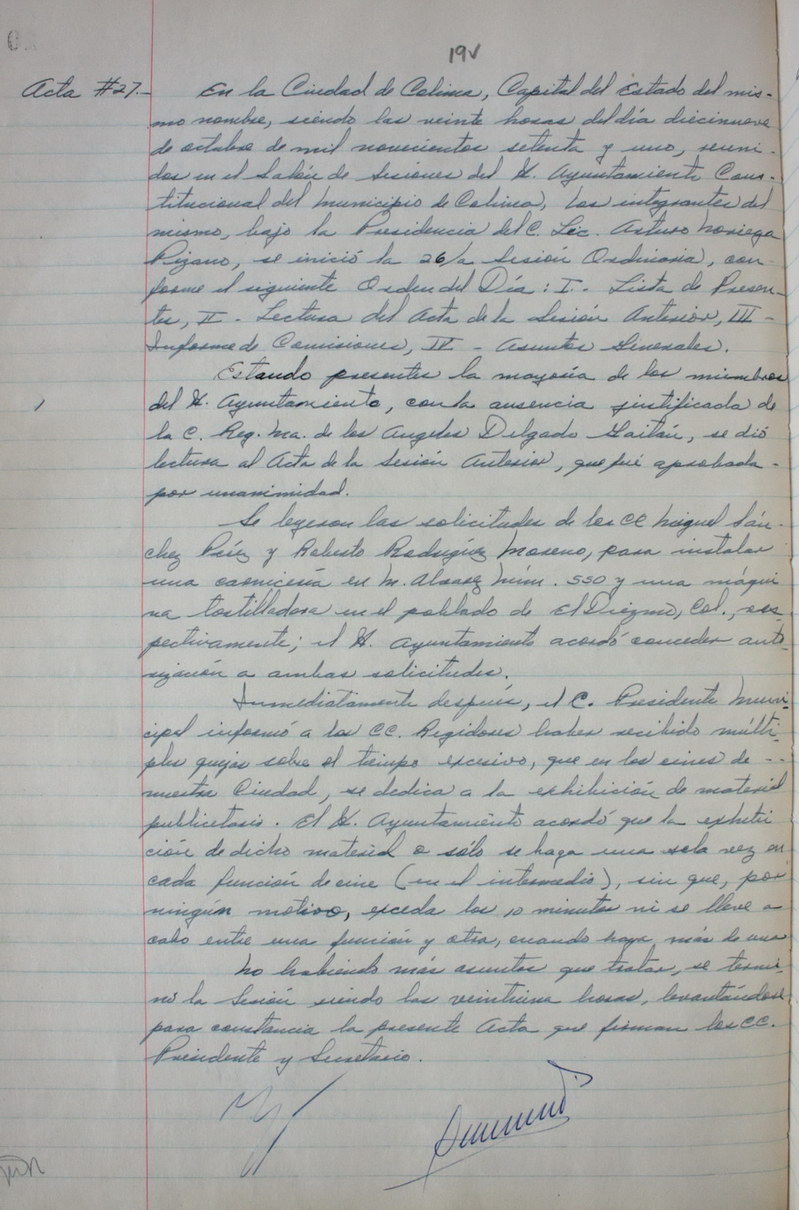 19v
Acta #27.- En la Ciudad de Colima, Capital del Estado del mis-
mo nombre, siendo las veinte horas del día diecinueve
de octubre de mil novecientos setenta y uno, reuni-
dos en el Salón de Sesiones del H. Ayuntamiento Cons-
titucional del Municipio de Colima, los integrantes del
mismo, bajo la Presidencia del C. Lic. Arturo Noriega
Pizano, se inició la 26/a Sesión Ordinaria, con-
forme el siguiente Orden del Día: I.- Lista de Presen-
tes, II.- Lectura del Acta de la Sesión Anterior, III-
Informe de Comisiones, IV - Asuntos Generales.
Estando presentes la mayoría de los miembros
del H. Ayuntamiento, con la ausencia justificada de
la C. Reg. Ma. de los Angeles Delgado Gaitán, se dió
lectura al Acta de la Sesión Anterior, que fué aprobada
por unanimidad.
Se leyeron las solicitudes de los CC Miguel Sán-
chez Páez y Roberto Rodríguez Moreno, para instalar
una carnicería en M. Alvarez Núm. 550 y una máqui
na tortilladora en el poblado de El Diezmo, Col., res-
pectivamente; el H. Ayuntamiento acordó conceder auto-
rización a ambas solicitudes.
Inmediatamente después, el C. Presidente Muni-
cipal informó a los CC. Regidores haber recibido múlti-
ples quejas sobre el tiempo excesivo, que en los cines de --
nuestra Ciudad, se dedica a la exhibición de material
publicitario. El H. Ayuntamiento acordó que la exhibi
ción de dicho material o sólo se haga una sola vez en
cada función de cine (en el intermedio), sin que, por
ningún motivo, exceda los 10 minutos ni se lleve a
cabo entre una función y otra, cuando haya más de una
No habiendo más asuntos que tratar, se termi-
nó la Sesión siendo las veintiuna horas, levantándose
para constancia la presente Acta que firman los CC.
Presidente y Secretario.